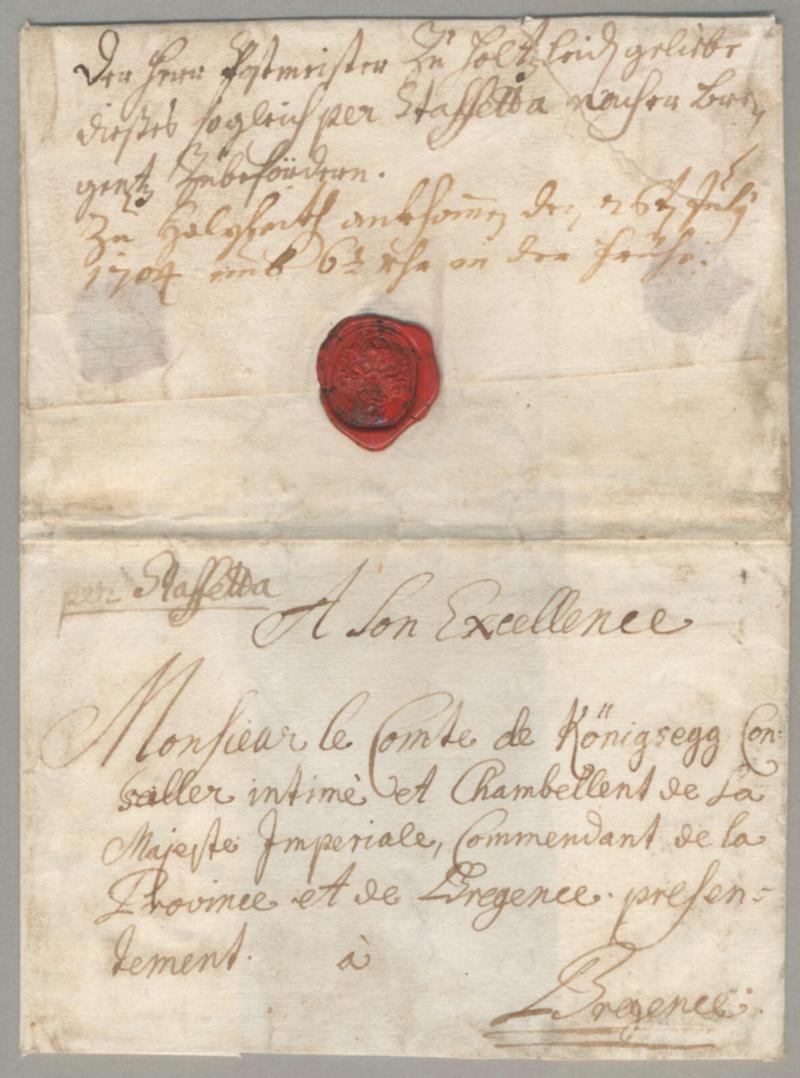 Der Herr Postmeister Zu Holtzleidt geliebe
dießes sogleich per Staffetta nacher Bre,
gentz Zubefördern.
Zu Holzleith ankhomen den 26t, July
1704 umb 6½ uhr in der fruhe.
per Staffetta
A Son Excellence
Monsieur le Comte de Königsegg Con:
seiller intimè et Chambellent de La
Majeste Imperiale, Commendant de la
Province et de Bregence. presen=
tement. à
Bregence.